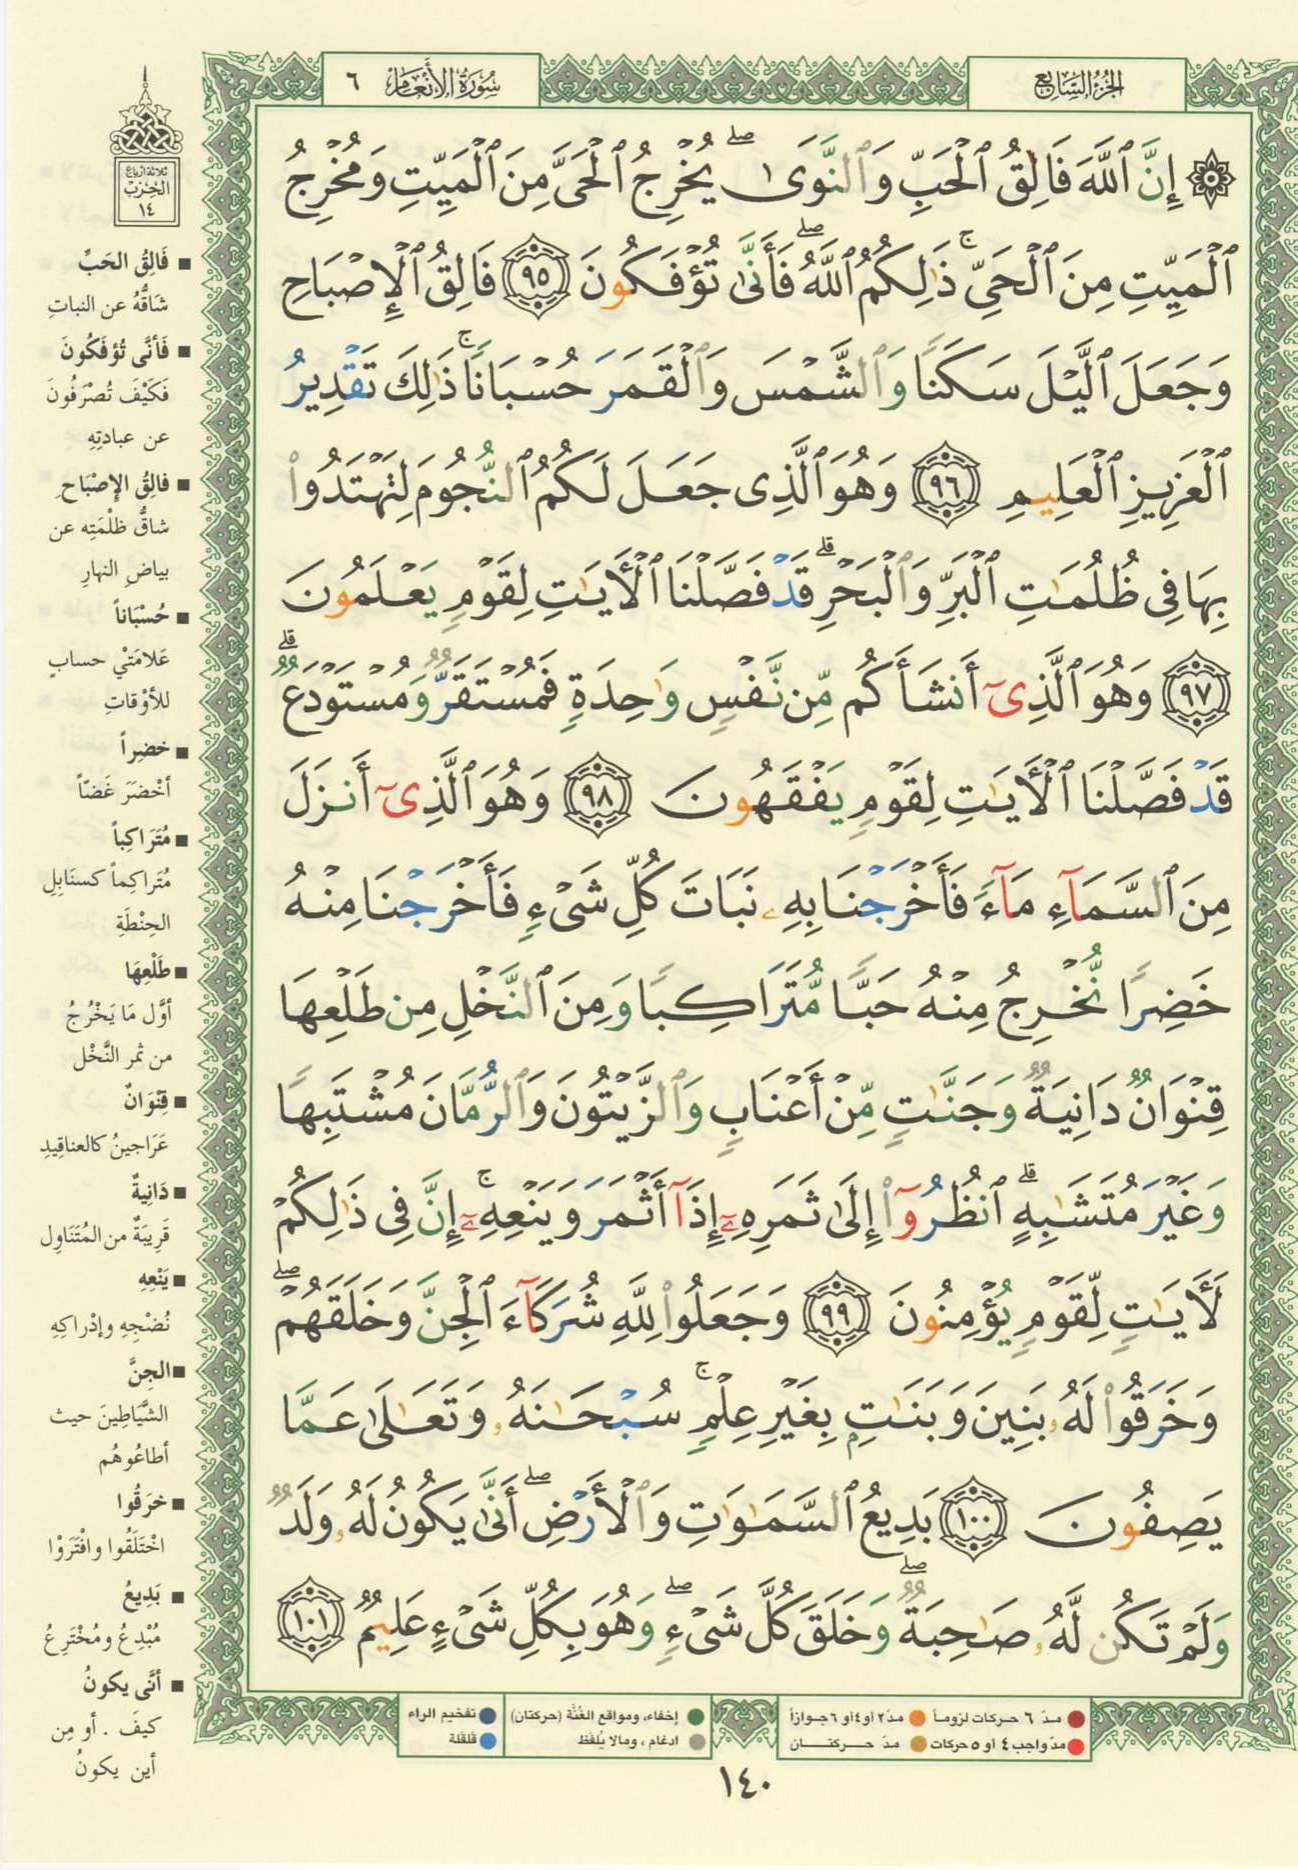 الجزء السابع
سورة الأنعام ٦
۞ إِنَّ ٱللَّهَ فَالِقُ ٱلْحَبِّ وَٱلنَّوَىٰ ۖ يُخْرِجُ ٱلْحَىَّ مِنَ ٱلْمَيِّتِ وَمُخْرِجُ
ٱلْمَيِّتِ مِنَ ٱلْحَىِّ ۚ ذَٰلِكُمُ ٱللَّهُ ۖ فَأَنَّىٰ تُؤْفَكُونَ ٩٥ فَالِقُ ٱلْإِصْبَاحِ
وَجَعَلَ ٱلَّيْلَ سَكَنًا وَٱلشَّمْسَ وَٱلْقَمَرَ حُسْبَانًا ۚ ذَٰلِكَ تَقْدِيرُ
ٱلْعَزِيزِ ٱلْعَلِيمِ ٩٦ وَهُوَ ٱلَّذِى جَعَلَ لَكُمُ ٱلنُّجُومَ لِتَهْتَدُوا۟
بِهَا فِى ظُلُمَٰتِ ٱلْبَرِّ وَٱلْبَحْرِ ۗ قَدْ فَصَّلْنَا ٱلْءَايَٰتِ لِقَوْمٍ يَعْلَمُونَ
٩٧ وَهُوَ ٱلَّذِىٓ أَنشَأَكُم مِّن نَّفْسٍ وَٰحِدَةٍ فَمُسْتَقَرٌّ وَمُسْتَوْدَعٌ ۗ
قَدْ فَصَّلْنَا ٱلْءَايَٰتِ لِقَوْمٍ يَفْقَهُونَ ٩٨ وَهُوَ ٱلَّذِىٓ أَنزَلَ
مِنَ ٱلسَّمَآءِ مَآءً فَأَخْرَجْنَا بِهِۦ نَبَاتَ كُلِّ شَىْءٍ فَأَخْرَجْنَا مِنْهُ
خَضِرًا نُّخْرِجُ مِنْهُ حَبًّا مُّتَرَاكِبًا وَمِنَ ٱلنَّخْلِ مِن طَلْعِهَا
قِنْوَانٌ دَانِيَةٌ وَجَنَّٰتٍ مِّنْ أَعْنَابٍ وَٱلزَّيْتُونَ وَٱلرُّمَّانَ مُشْتَبِهًا
وَغَيْرَ مُتَشَٰبِهٍ ۗ ٱنظُرُوٓا۟ إِلَىٰ ثَمَرِهِۦٓ إِذَآ أَثْمَرَ وَيَنْعِهِۦٓ ۚ إِنَّ فِى ذَٰلِكُمْ
لَءَايَٰتٍ لِّقَوْمٍ يُؤْمِنُونَ ٩٩ وَجَعَلُوا۟ لِلَّهِ شُرَكَآءَ ٱلْجِنَّ وَخَلَقَهُمْ ۖ
وَخَرَقُوا۟ لَهُۥ بَنِينَ وَبَنَٰتٍۭ بِغَيْرِ عِلْمٍ ۚ سُبْحَٰنَهُۥ وَتَعَٰلَىٰ عَمَّا
يَصِفُونَ ١٠٠ بَدِيعُ ٱلسَّمَٰوَٰتِ وَٱلْأَرْضِ ۖ أَنَّىٰ يَكُونُ لَهُۥ وَلَدٌ
وَلَمْ تَكُن لَّهُۥ صَٰحِبَةٌ ۖ وَخَلَقَ كُلَّ شَىْءٍ ۖ وَهُوَ بِكُلِّ شَىْءٍ عَلِيمٌ ١٠١
ثلاثة أرباع
الحزب
١٤
■ فَالِقُ الحَبِّ
شَاقُّهُ عن النباتِ
■ فَأنَّى تُؤفَكُونَ
فَكَيْفَ تُصْرَفُونَ
عن عبادتِهِ
■ فالِقُ الإصْبَاحِ
شاقُّ ظلْمَتِه عن
بياضِ النهارِ
■ حُسْبَاناً
عَلامَتَيْ حسابٍ
للأوْقاتِ
■ خضِراً
أخْضَرَ غَضّاً
■ مُتَرَاكِباً
مُتَراكِماً كسنَابِلِ
الحِنْطَةِ
■ طَلْعِهَا
أوَّل مَا يَخْرُجُ
من ثمر النَّخْل
■ قِنْوَانٌ
عَرَاجينُ كالعناقِيدِ
■ دَانِيةٌ
قَرِيبَةٌ من المُتَنَاوِل
■ يَنْعِهِ
نُضْجِهِ وإدْراكِهِ
■ الجِنَّ
الشَّيَاطِينَ حيث
أطاعُوهُم
■ خرَقُوا
اخْتَلَقُوا وافْتَرَوْا
■ بَدِيعُ
مُبْدِعُ ومُخْتَرِعُ
■ أنَّى يكونُ
كيفَ . أو مِن
أين يكونُ
● مدّ ٦ حركات لزوماً ● مدّ ٢ او ٤ او ٦ جوازاً
● مدّ واجب ٤ او ٥ حركات ● مدّ حركتان
● إخفاء، ومواقع الغُنَّة (حركتان)
● ادغام ، ومالا يُلفظ
● تفخيم الراء
● قلقلة
١٤٠